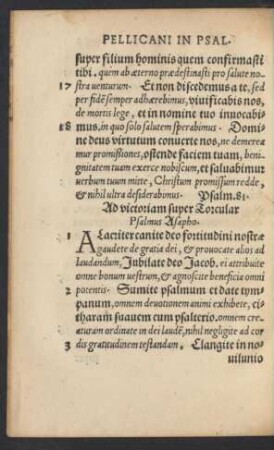 PELLICANI IN PSAL.
super filium hominis quem confirmasti
tibi. quem ab æterno prædestinasti pro salute no-
17 stra uenturum. Et non discedemus a te, sed
per fidē semper adhærebimus, viuificabis nos,
de mortis lege, et in nomine tuo inuocabi
18 mus, in quo solo salutem sperabimus. Domi-
ne deus virtutum conuerte nos, ne demerea
mur promissiones, ostende faciem tuam, beni-
gnitatem tuam exerce nobiscum, et saluabimur
uerbum tuum mitte, Christum promissum redde,
& nihil ultra desiderabimus. Psalm. 81.
Ad victoriam super Torcular
Psalmus Asapho.
1 Alacriter canite deo fortitudini nostræ
gaudete de gratia dei, & prouocate alios ad
laudandum, Jubilate deo Jacob, ei attribuite
omne bonum uestrum, & agnoscite beneficia omni
2 potentis. Sumite psalmum et date tym-
panum, omnem deuotionem animi exhibete, ci-
tharam suauem cum psalterio. omnem cre-
aturam ordinate in dei laudē, nihil negligite ad cor
3 dis gratitudinem testandam. Clangite in no-
uilunio